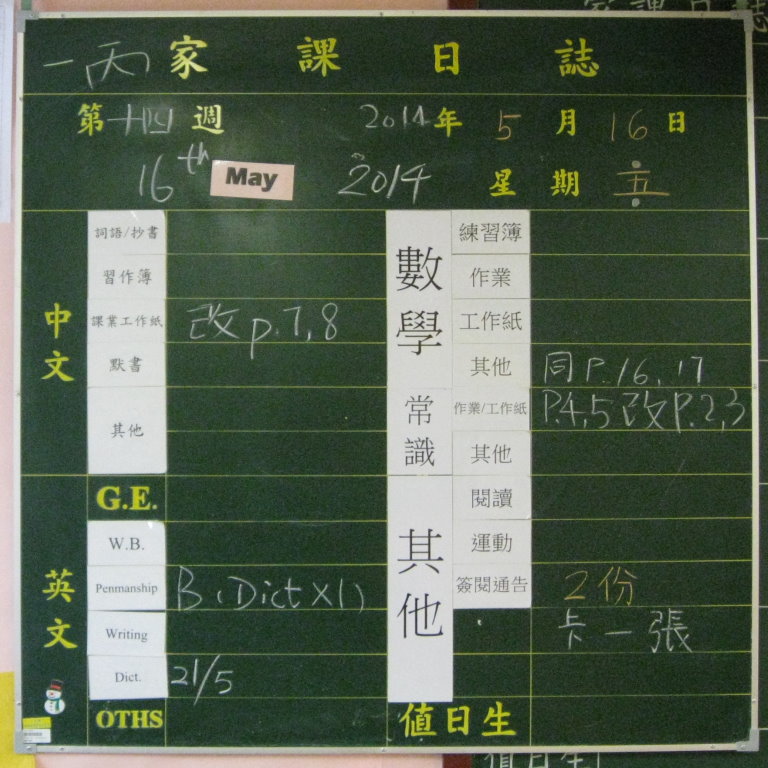 一丙 家課日誌
第 十四 週 2014 年 5 月 16 日
16th May 2014 星期 五
中文
詞語/抄書
習作簿
課業工作紙 改 p.7,8
默書
其他
英文
G.E.
W.B.
Penmanship B (Dict X1)
Writing
Dict. 21/5
OTHS
數學
練習簿
作業
工作紙
其他 同 P.16, 17
常識
作業/工作紙 P.4,5 改 P.2,3
其他
其他
閱讀
運動
簽閱通告 2份
卡一張
值日生